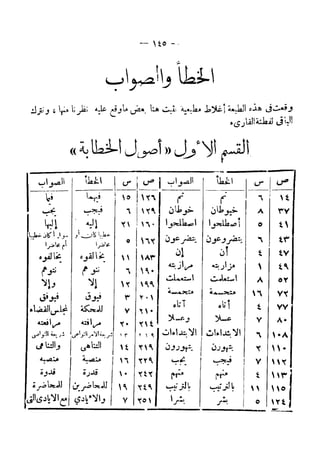 — ١٤٥ —
الخطأ والصواب
وقعت فى هذه الطبعة أغلاط مطبعية نثبت هنا بعض ما وقع عليه نظرنا منها ، ونترك
الباقى لفطنة القارىء
القسم الأول «أصول الخطابة»
ص س الخطأ الصواب ص س الخطأ الصواب
١٤ ٦ ١٢٦ ١٥ فيهما فيها
٣٧ ٨ خيوطان خوطان ١٢٩ ٦ فيجب يجب
٤١ ٥ أصطلحوا اصطلحوا ١٦٠ ٢١ إليه إليها
٤٣ ٦ يتضروعون يتضرعون ١٦٢ ٥
٤٧ ٤ أن إن ١٨٣ ١١ يخالفوه يخالفوه
٤٩ ١ مزاربته مرازبته ١٩٠ ٦
٥٢ ٨ استعملت استعملت ١٩٩ ١٢ إلا وإلا
٧٢ ١٦ متحمسة متحمسة ٢٠١ ٣ فيوق فيوفق
٧٧ ٤ أتاه آتاه ٢١٠ ٧ للمحكمة لمجلس القضاء
٨٠ ٧ عسلا وعسلا ٢١٤ ٢٠ مرافته مرافعته
١٠٨ ٩ الابتداءات الابتداءات
١١٠ ٢ يتهورن يتهورون ٢١٩ ١٤ التناهى والتناهى
١١٢ ٧ فيجب يجب ٢٢٩ ١٦ منصبة منصبه
١١٣ ٤ منهم منهم ٢٤٢ ١٠ قدرة قدوة
١١٥ ١١ بالترتيب بالترتيب ٢٤٩ ١٩ للحاضرين للمحاضرة
١٢٤ ٥ بشر بشرا ٢٥١ ٧ والايادي مع الايادى التى